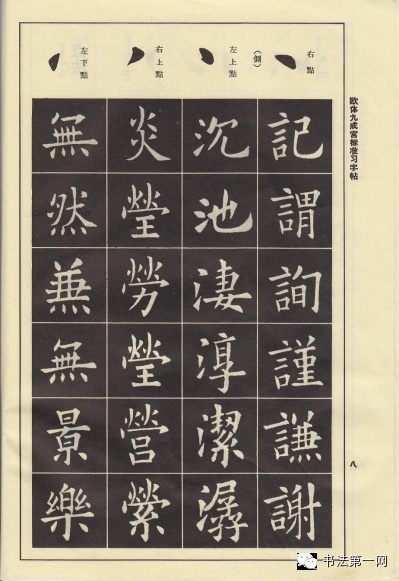 欧体九成宫标准习字帖
八
右點
(側)
記謂詢謹謙謝
左上點
沉池淒淳潔潺
右上點
炎瑩勞瑩營縈
左下點
無然兼無景樂
书法第一网